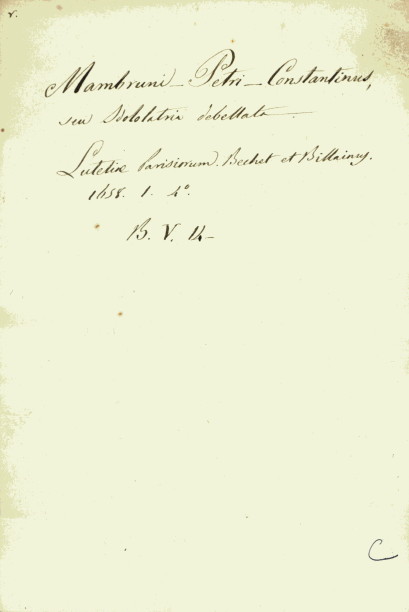 r.
Mambruni - Petri - Constantinus,
seu Idololatria debellata.
Lutetiæ Parisiorum. Bechet et Billainus.
1658. 1. 4º.
B. V. 14 -
C